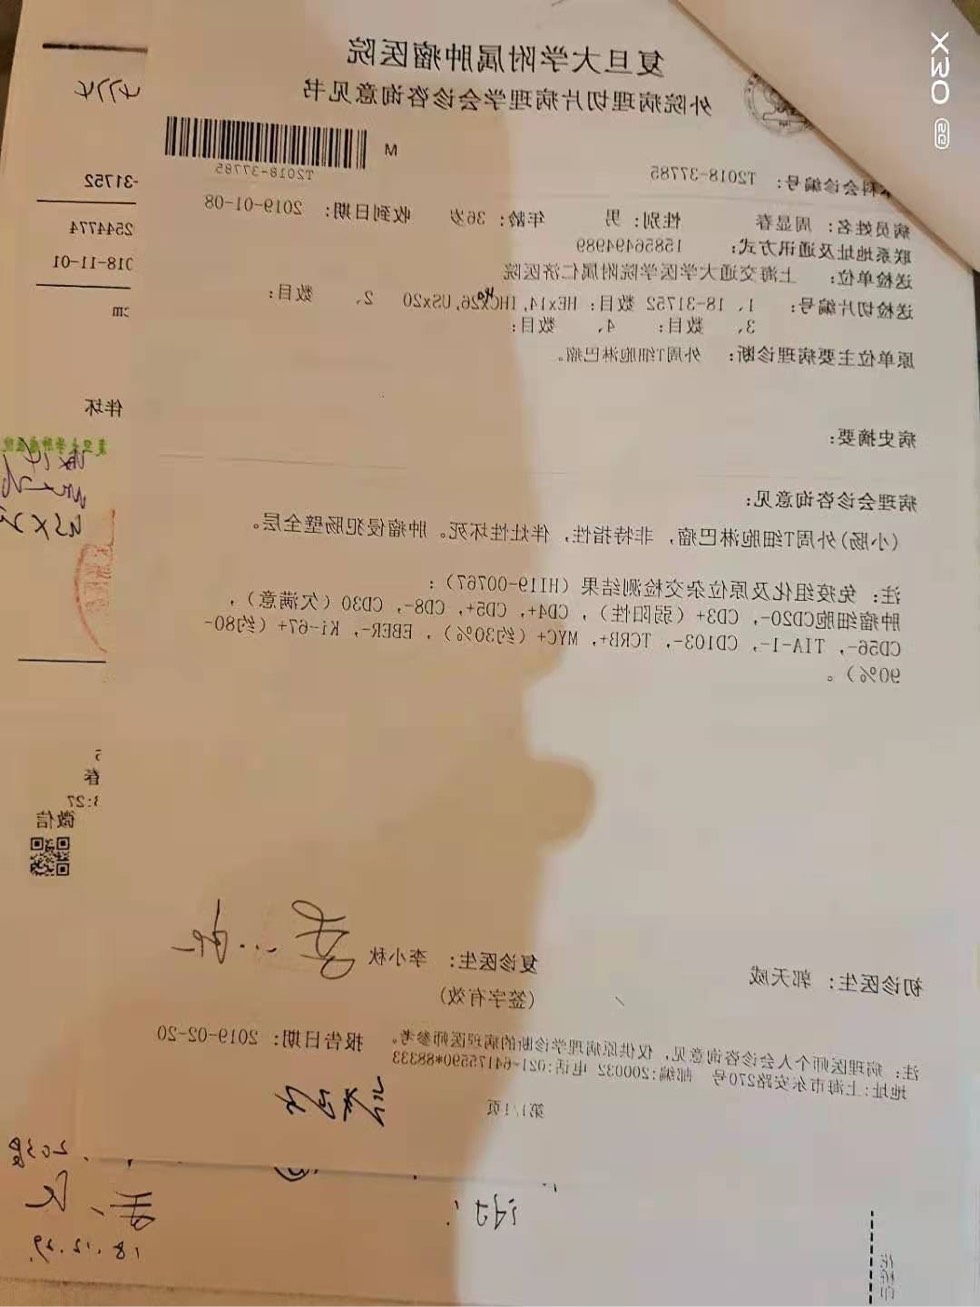 复旦大学附属肿瘤医院
外院病理切片病理学会诊咨询意见书
T2018-37785
M
科会诊编号: T2018-37785
病员姓名: 周显春 性别: 男 年龄: 36岁 收到日期: 2019-01-08
联系地址及通讯方式: 15856494989
送检单位: 上海交通大学医学院附属仁济医院
送检切片编号: 1、18-31752 数目: HEx14, IHCx26, USx20 2、 数目:
3、 数目: 4、 数目:
原单位主要病理诊断: 外周T细胞淋巴瘤。
病史摘要:
病理会诊咨询意见:
(小肠)外周T细胞淋巴瘤, 非特指性, 伴灶性坏死。肿瘤侵犯肠壁全层。
注: 免疫组化及原位杂交检测结果 (HI19-00767) :
肿瘤细胞CD20-, CD3+ (弱阳性) , CD4+, CD5+, CD8-, CD30 (欠满意) ,
CD56-, TIA-1-, CD103-, TCRB+, MYC+ (约30%) , EBER-, Ki-67+ (约80-
90%) 。
初诊医生: 郭天威 复诊医生: 李小秋
(签字有效)
注: 病理医师个人会诊咨询意见, 仅供原病理学诊断的病理医师参考。 报告日期: 2019-02-20
地址:上海市东安路270号 邮编:200032 电话:021-64175590*88333
第1/1页
-31752
2544774
018-11-01
cm
伴坏
春
3:27
微信
18.12.29
X30